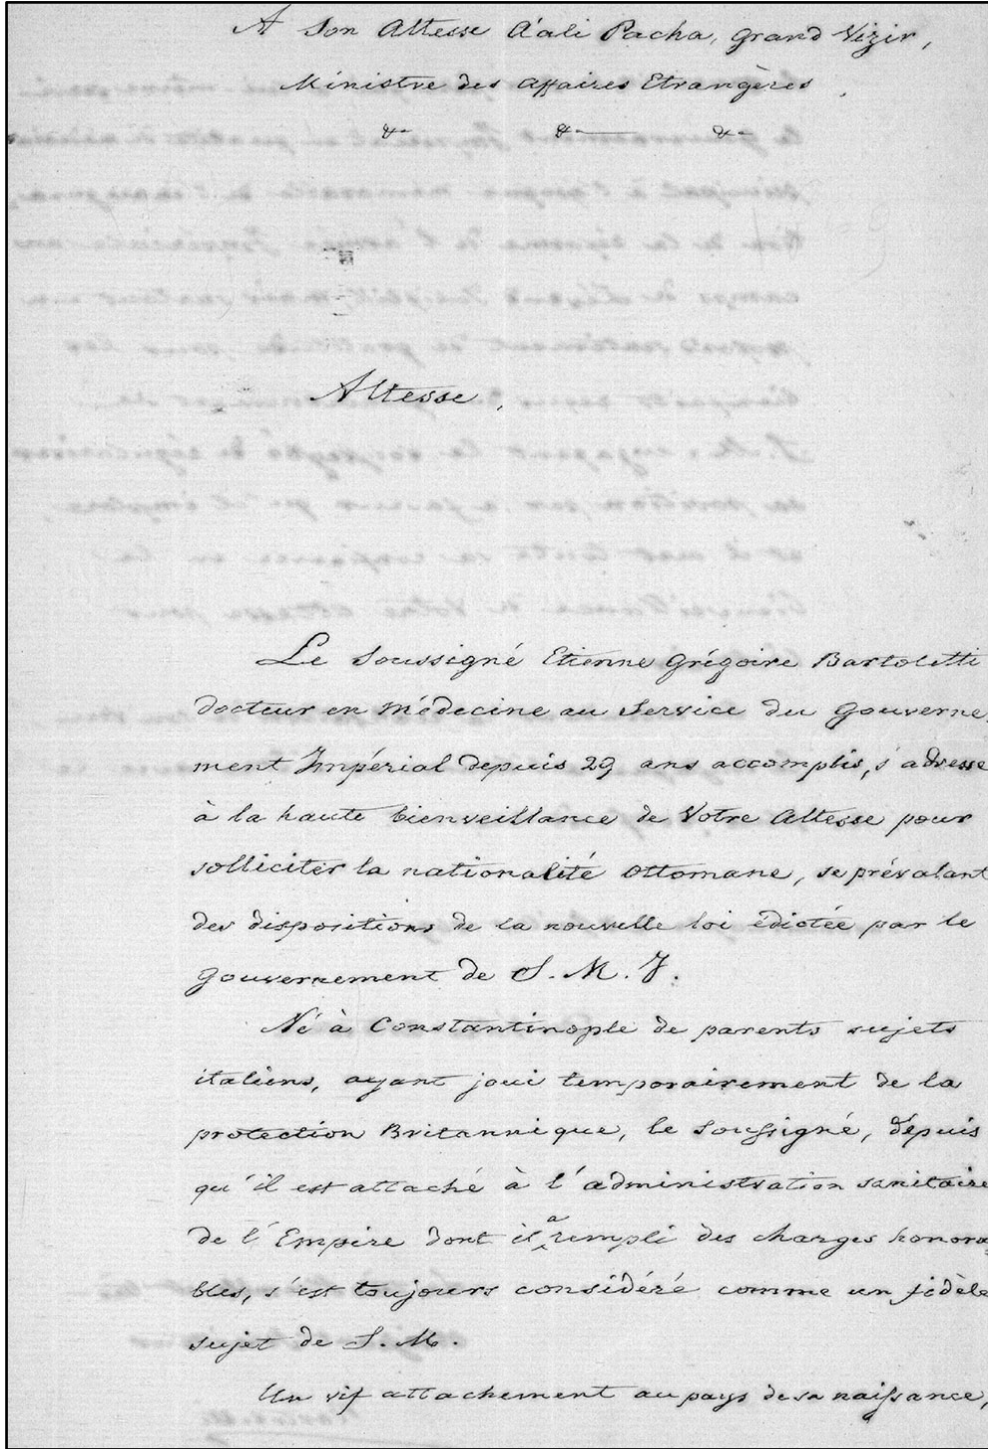 A Son Altesse Aáli Pacha, Grand Vizir,
Ministre des Affaires Etrangères.
&- &- &-
Altesse,
Le Soussigné Etienne Grégoire Bartoletti
docteur en Médecine au Service du Gouverne-
ment Impérial depuis 29 ans accomplis, s'adresse
à la haute bienveillance de Votre Altesse pour
solliciter la nationalité Ottomane, se prévalant
des dispositions de la nouvelle loi édictée par le
Gouvernement de S. M. I.
Né à Constantinople de parents sujets
italiens, ayant joui temporairement de la
protection Britannique, le Soussigné, depuis
qu'il est attaché à l'administration sanitaire
de l'Empire dont il a rempli des charges honora-
bles, s'est toujours considéré comme un fidèle
sujet de S. M.
Un vif attachement au pays de sa naissance,